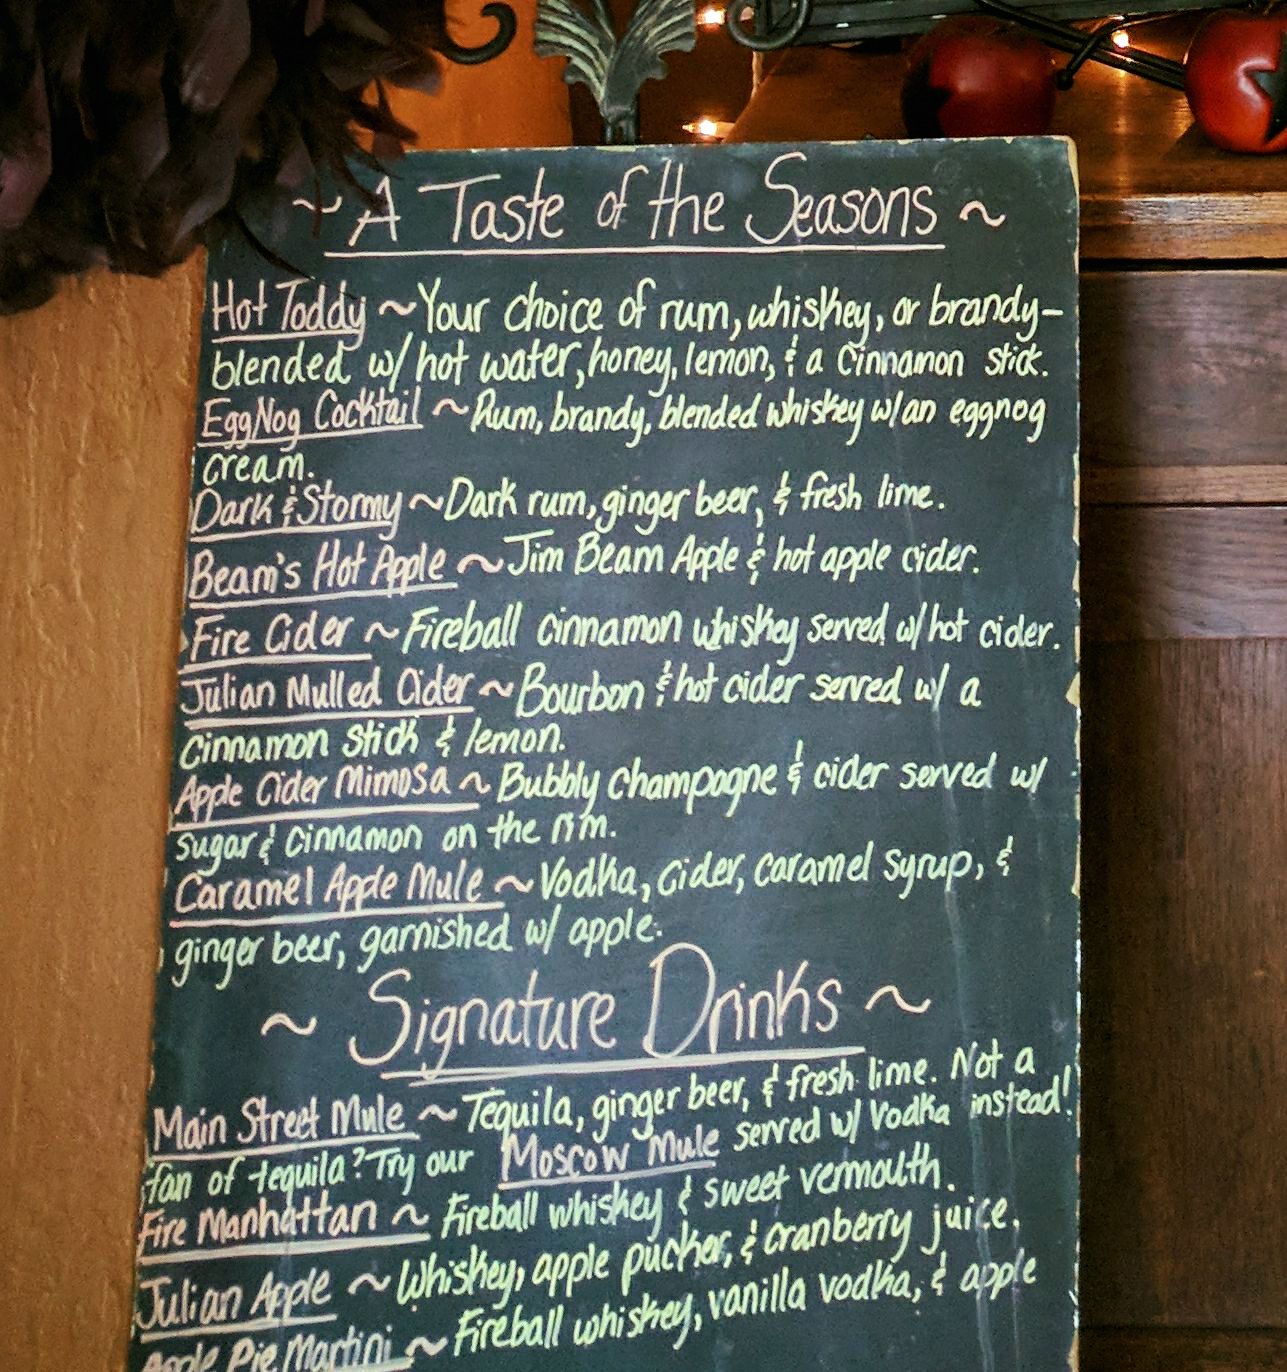 ~ A Taste of the Seasons ~
Hot Toddy ~ Your choice of rum, whiskey, or brandy-
blended w/ hot water, honey, lemon, & a Cinnamon stick.
EggNog Cocktail ~ Rum, brandy, blended whiskey w/an eggnog
cream.
Dark & Stormy ~ Dark rum, ginger beer, & fresh lime.
Beam's Hot Apple ~ Jim Beam Apple & hot apple cider.
Fire Cider ~ Fireball cinnamon whiskey served w/ hot cider.
Julian Mulled Cider ~ Bourbon & hot cider served w/ a
cinnamon stick & lemon.
Apple Cider Mimosa ~ Bubbly champagne & cider served w/
sugar & cinnamon on the rim.
Caramel Apple Mule ~ Vodka, cider, caramel syrup, &
ginger beer, garnished w/ apple.
~ Signature Drinks ~
Main Street Mule ~ Tequila, ginger beer, & fresh lime. Not a
fan of tequila? Try our Moscow Mule served w/ Vodka instead!
Fire Manhattan ~ Fireball whiskey & sweet vermouth.
Julian Apple ~ Whiskey, apple pucker, & cranberry juice.
Apple Pie Martini ~ Fireball whiskey, vanilla vodka, & apple